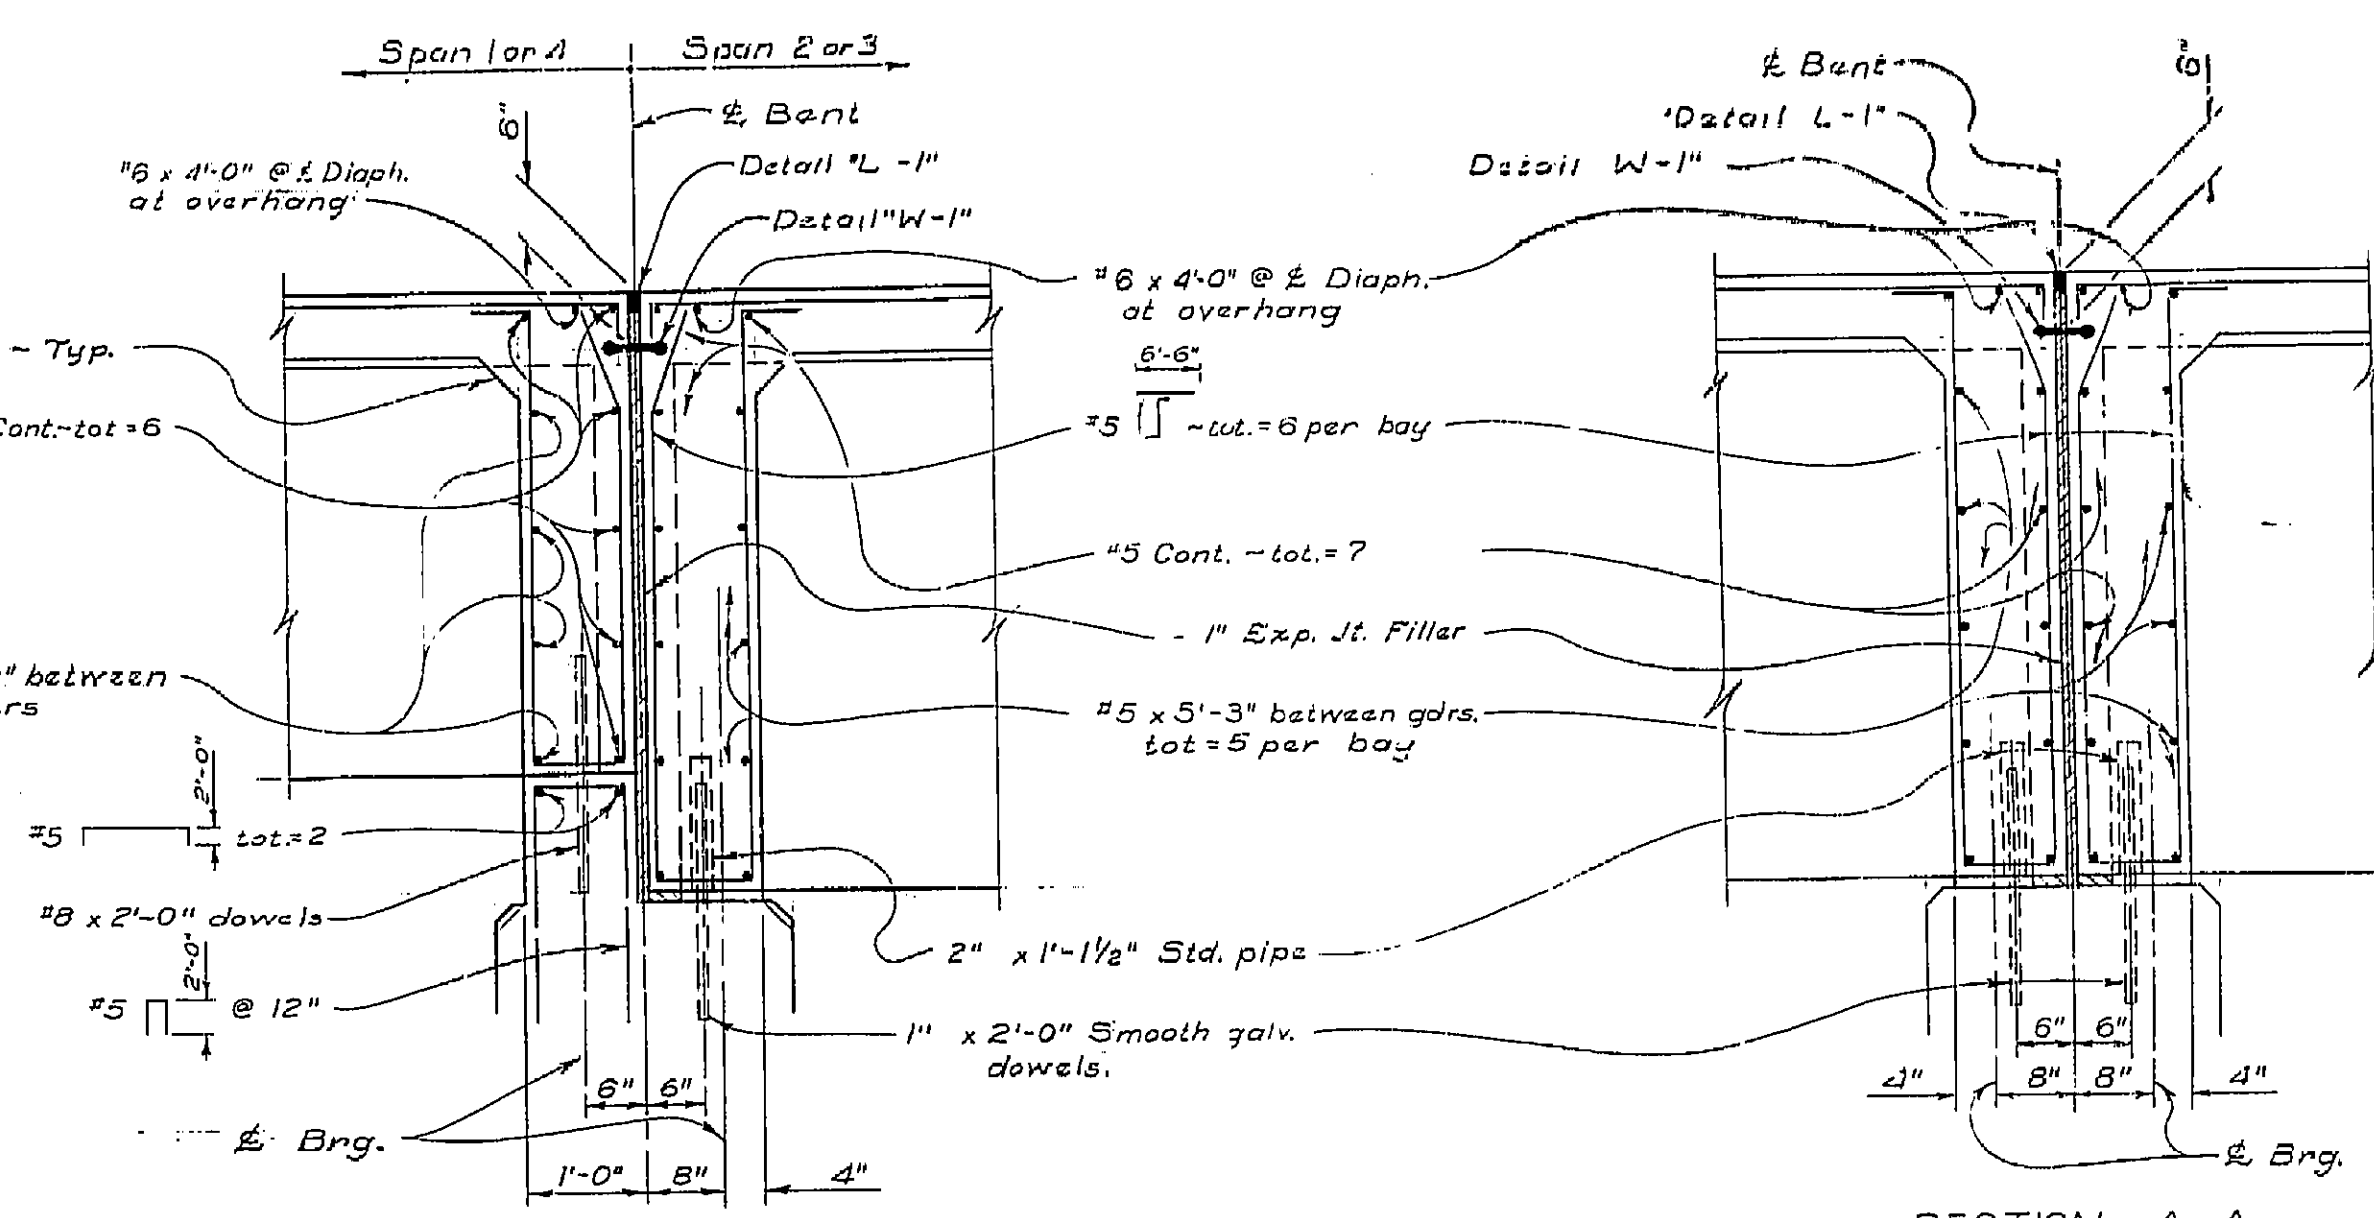 Span 1 or 4
Span 2 or 3
℄ Bent
6"
Detail "L-1"
#6 x 4'-0" @ ℄ Diaph.
at overhang
Detail "W-1"
~ Typ.
Cont.~tot = 6
" between
rs
2'-0"
#5 tot.= 2
#8 x 2'-0" dowels
2'-0"
#5 @ 12"
6" 6"
℄ Brg.
1'-0" 8" 4"
#6 x 4'-0" @ ℄ Diaph.
at overhang
6'-6"
#5 ~tot.= 6 per bay
#5 Cont. ~ tot.= 7
- 1" Exp. Jt. Filler
#5 x 5'-3" between gdrs.
tot = 5 per bay
2" x 1'-1½" Std. pipe
1" x 2'-0" Smooth galv.
dowels.
℄ Bent
6"
"Detail L-1"
Detail W-1"
6" 6"
4" 8" 8" 4"
℄ Brg.
SECTION A-A